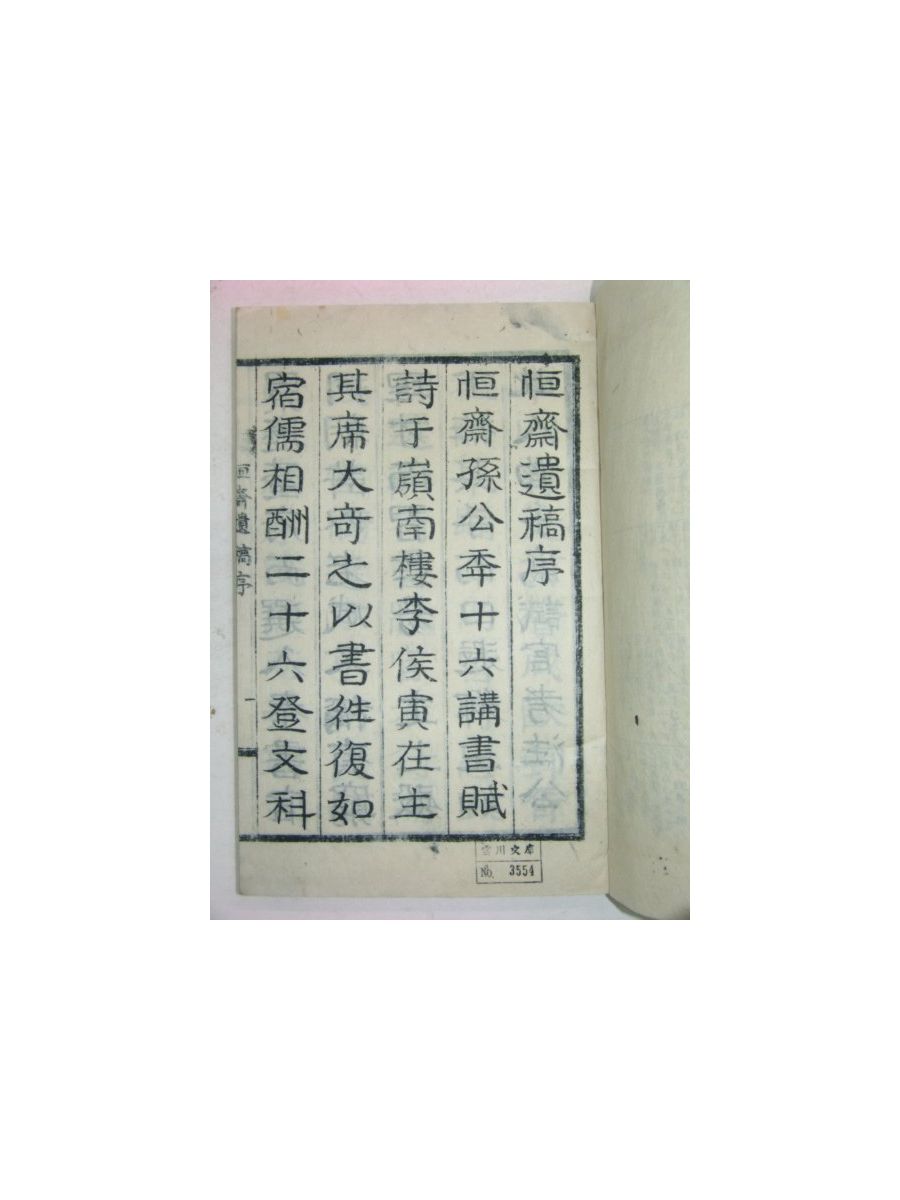 恒齋遺稿序
恒齋孫公年十六講書賦
詩于嶺南樓李侯寅在主
其席大奇之以書往復如
宿儒相酬二十六登文科
恒齋遺稿序
一
川文庫
No. 3554